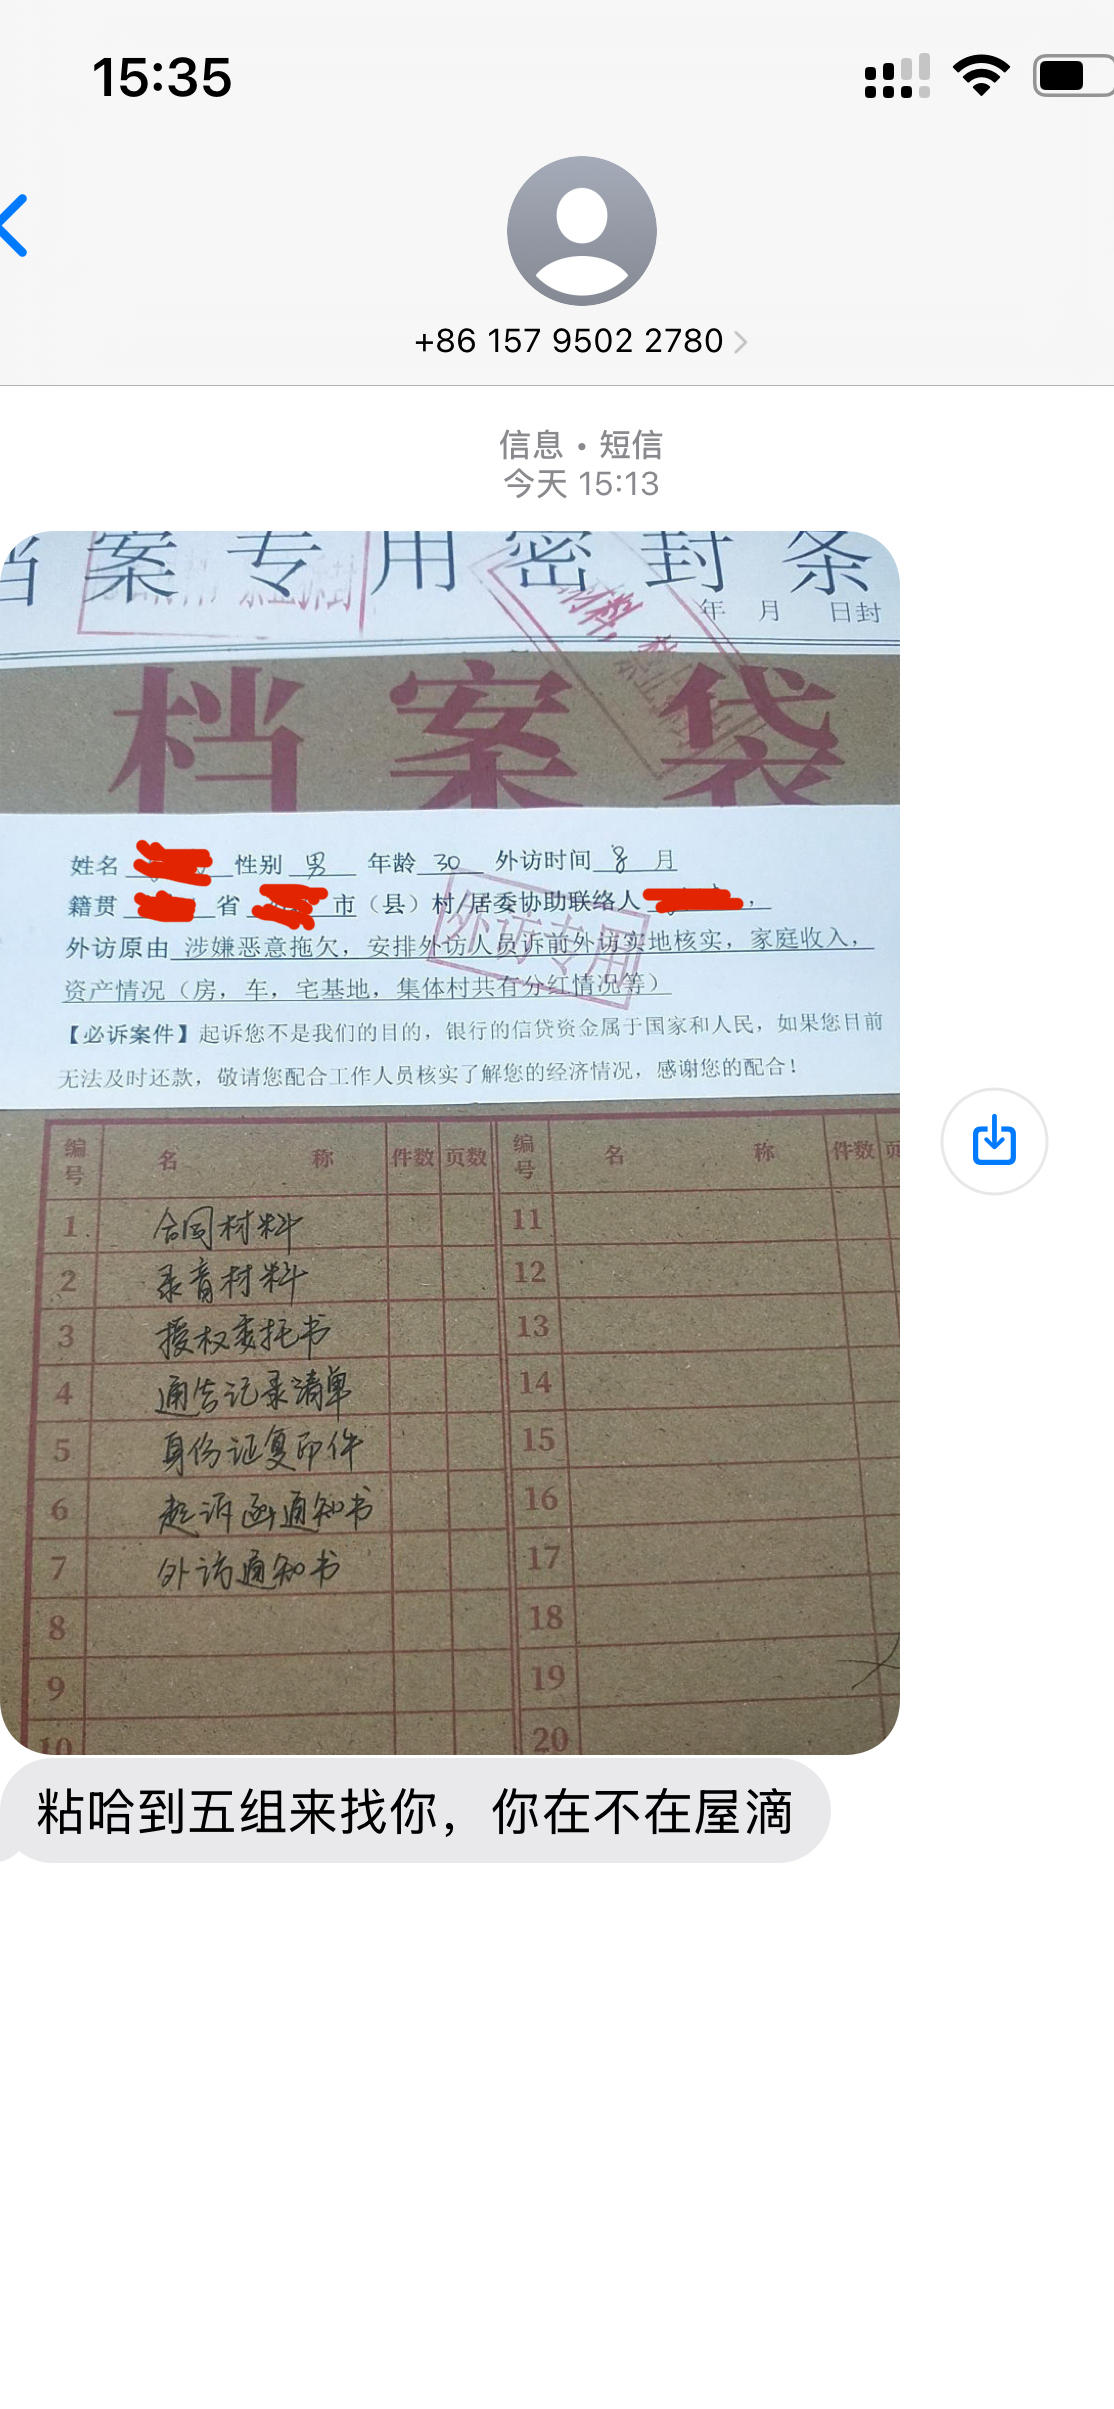 15:35
+86 157 9502 2780
信息・短信
今天 15:13
档案专用密封条
年 月 日封
档案袋
姓名 性别 男 年龄 30 外访时间 8 月
籍贯 省 市（县）村/居委协助联络人
外访专用
外访原由 涉嫌恶意拖欠，安排外访人员诉前外访实地核实，家庭收入，
资产情况（房，车，宅基地，集体村共有分红情况等）
【必诉案件】起诉您不是我们的目的，银行的信贷资金属于国家和人民，如果您目前
无法及时还款，敬请您配合工作人员核实了解您的经济情况，感谢您的配合！
编号 名 称 件数 页数 编号 名 称 件数 页
1. 合同材料 11
2 录音材料 12
3 授权委托书 13
4 通告记录清单 14
5 身份证复印件 15
6 起诉函通知书 16
7 外访通知书 17
8 18
9 19
10 20
粘哈到五组来找你，你在不在屋滴